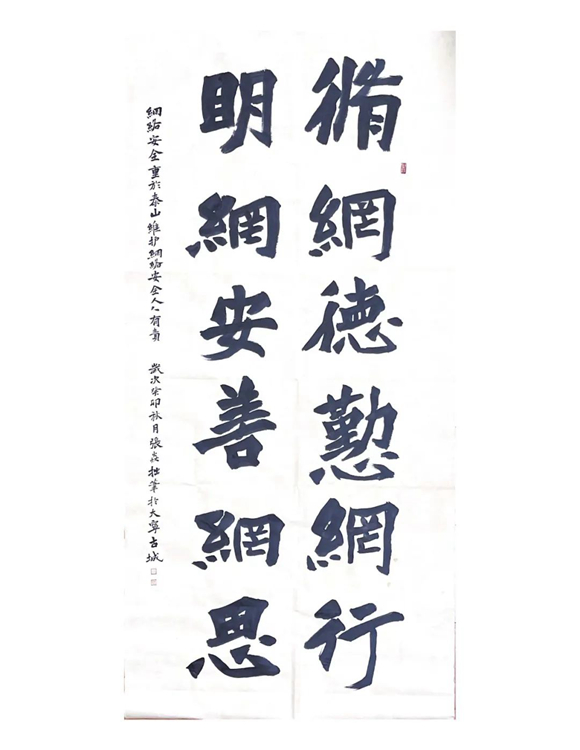 脩網徳懃網行
眀網安善網思
網絡安全重於泰山維护網絡安全人々有責 歲次癸卯秋月張拙筆於大寧古城